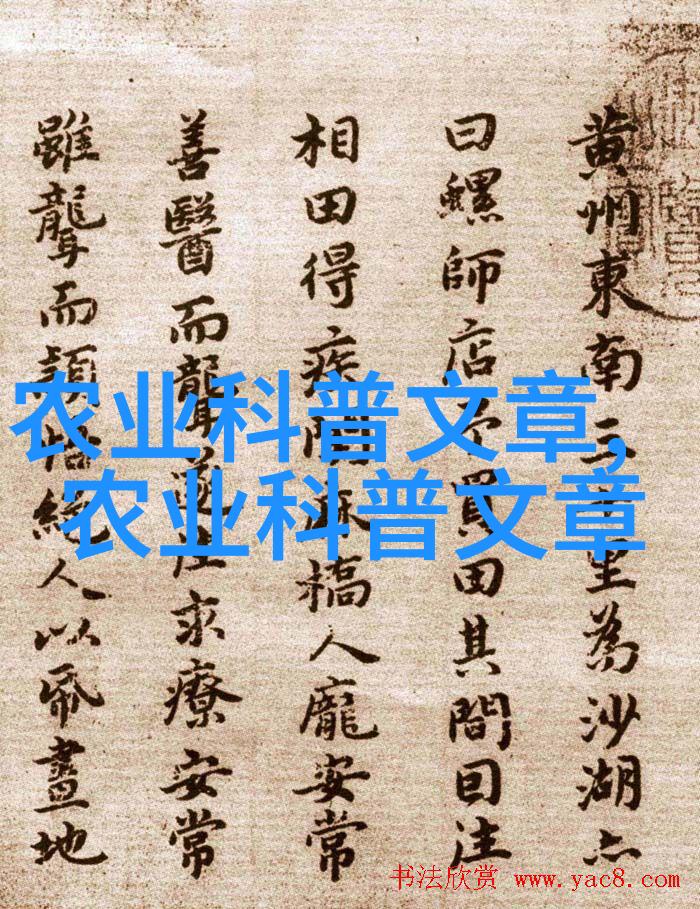 黄州東南三十里為沙湖亦
曰螺師店予買田其間因往
相田得疾聞麻橋人龐安常
善醫而聾遂往求療安常
雖聾而穎悟絕人以紙畫地
农业科普文章,
农业科普文章
书法欣赏 www.yac8.com